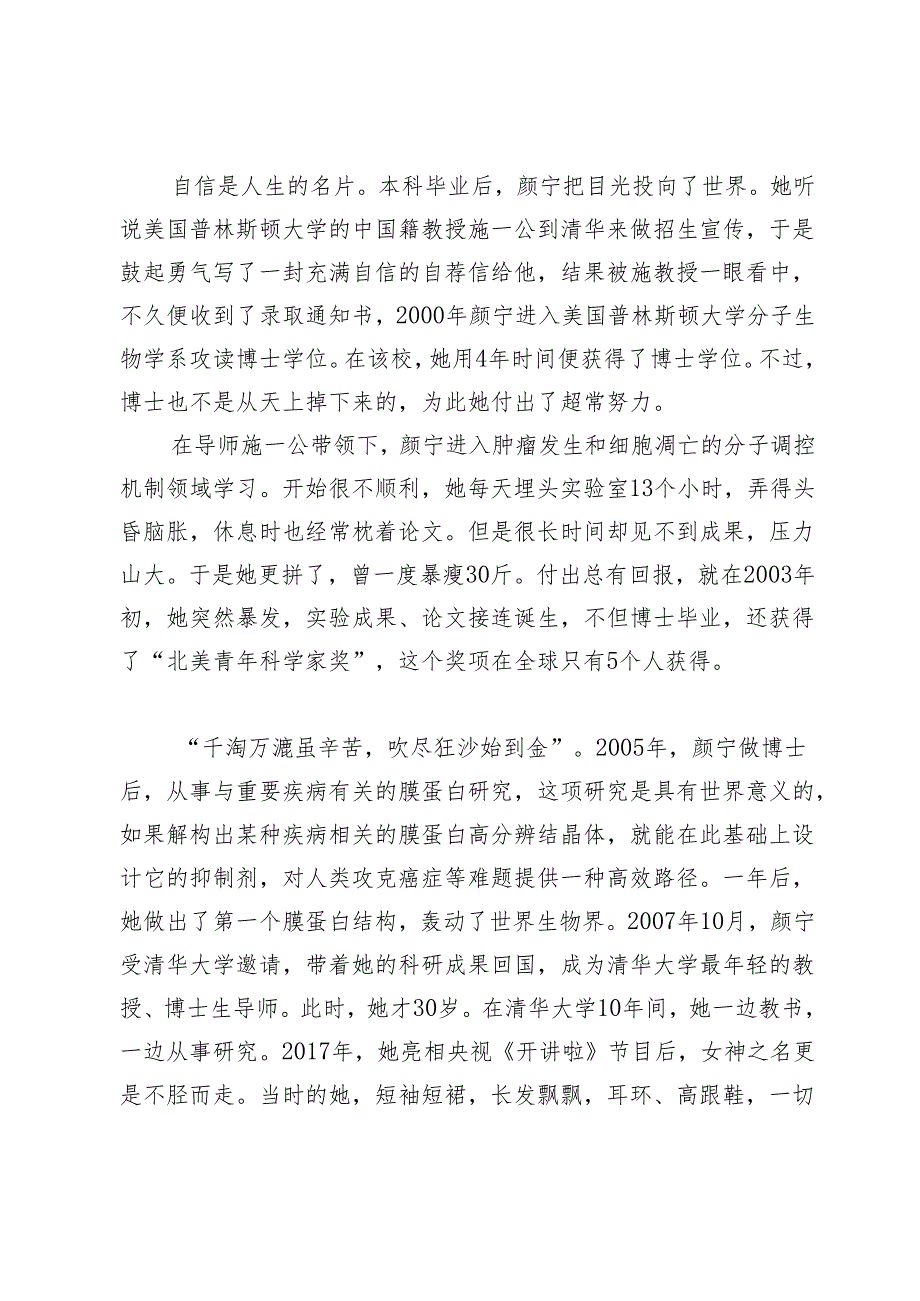 自信是人生的名片。本科毕业后，颜宁把目光投向了世界。她听
说美国普林斯顿大学的中国籍教授施一公到清华来做招生宣传，于是
鼓起勇气写了一封充满自信的自荐信给他，结果被施教授一眼看中，
不久便收到了录取通知书，2000年颜宁进入美国普林斯顿大学分子生
物学系攻读博士学位。在该校，她用4年时间便获得了博士学位。不过，
博士也不是从天上掉下来的，为此她付出了超常努力。
在导师施一公带领下，颜宁进入肿瘤发生和细胞凋亡的分子调控
机制领域学习。开始很不顺利，她每天埋头实验室13个小时，弄得头
昏脑胀，休息时也经常枕着论文。但是很长时间却见不到成果，压力
山大。于是她更拼了，曾一度暴瘦30斤。付出总有回报，就在2003年
初，她突然暴发，实验成果、论文接连诞生，不但博士毕业，还获得
了“北美青年科学家奖”，这个奖项在全球只有5个人获得。
“千淘万漉虽辛苦，吹尽狂沙始到金”。2005年，颜宁做博士
后，从事与重要疾病有关的膜蛋白研究，这项研究是具有世界意义的，
如果解构出某种疾病相关的膜蛋白高分辨结晶体，就能在此基础上设
计它的抑制剂，对人类攻克癌症等难题提供一种高效路径。一年后，
她做出了第一个膜蛋白结构，轰动了世界生物界。2007年10月，颜宁
受清华大学邀请，带着她的科研成果回国，成为清华大学最年轻的教
授、博士生导师。此时，她才30岁。在清华大学10年间，她一边教书，
一边从事研究。2017年，她亮相央视《开讲啦》节目后，女神之名更
是不胫而走。当时的她，短袖短裙，长发飘飘，耳环、高跟鞋，一切